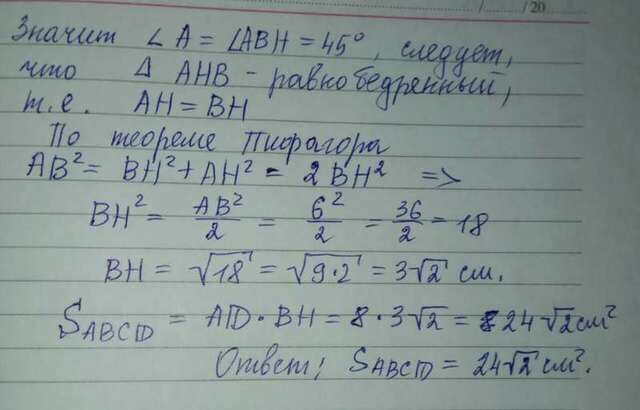 / /20
Значит ∠A = ∠ABH = 45°, следует,
что Δ AHB - равнобедренный,
т.е. AH = BH
По теореме Пифагора
AB² = BH² + AH² = 2BH² =>
BH² = AB²/2 = 6²/2 = 36/2 = 18
BH = √18 = √9·2 = 3√2 см.
S ABCD = AD · BH = 8 · 3√2 = 24√2 см²
Ответ: S ABCD = 24√2 см².